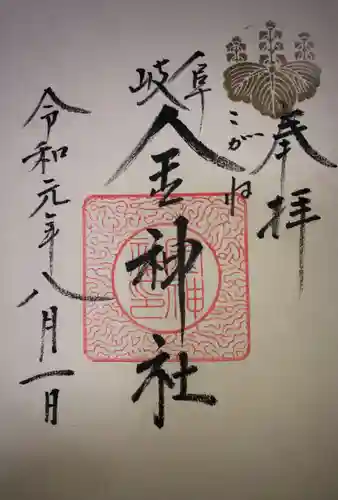 奉拝
こがね
岐阜
金神社
令和元年八月一日